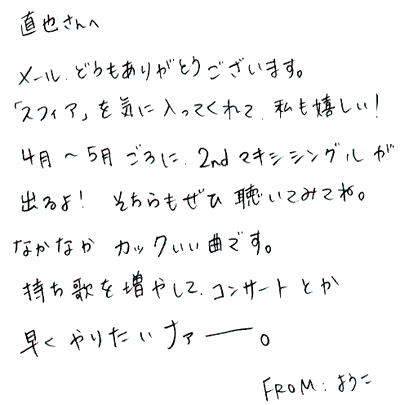 直也さんへ
メール、どうもありがとうございます。
「スフィア」を気に入ってくれて、私も嬉しい!
4月〜5月ごろに、2ndマキシシングルが
出るよ! そちらもぜひ聴いてみてね。
なかなかカックいい曲です。
持ち歌を増やして、コンサートとか
早くやりたいナァー。
FROM:ようこ